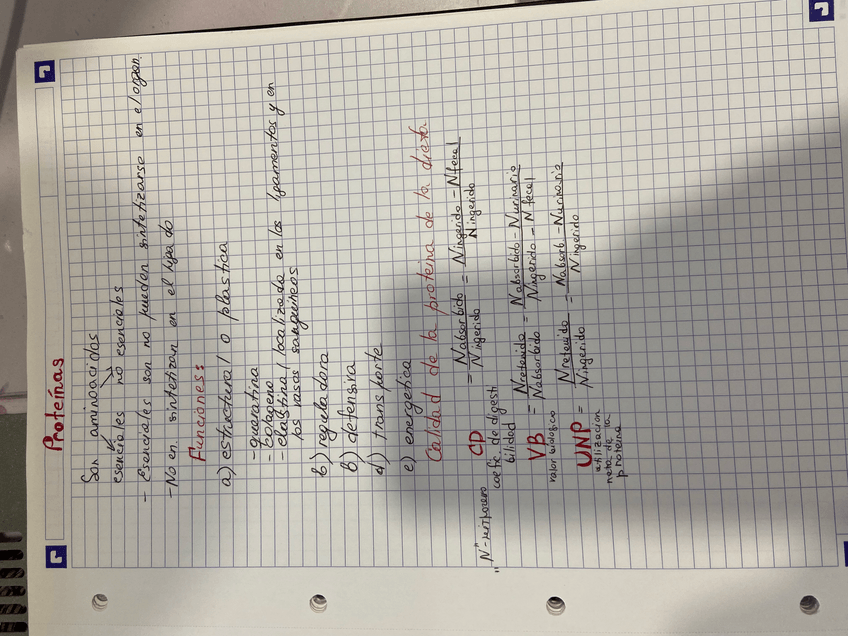 Proteínas
Son aminoacidos
esenciales no esenciales
- Esenciales son no pueden sintetizarse en el organ.
- No en sintetizan en el higado
Funciones:
a) estructural o plastica
- queratina
- colageno
- elastina / localizado en los ligamentos y en
los vasos sanguineos
b) reguladora
b) defensiva
d) transporte
e) energetica
Calidad de la proteina de la dieta.
CP = Nabsorbido / Ningerido = Ningerido - Nfecal / Ningerido
"N"-
coefic. de digesti
bilidad
VB = Nretenido / Nabsorbido = Nabsorbido - Nurinario / Ningerido - N fecal
valor biologico
UNP = Nretenido / Ningerido = Nabsorb - Nurinario / Ningerino
utilizacion
neta de la
proteina